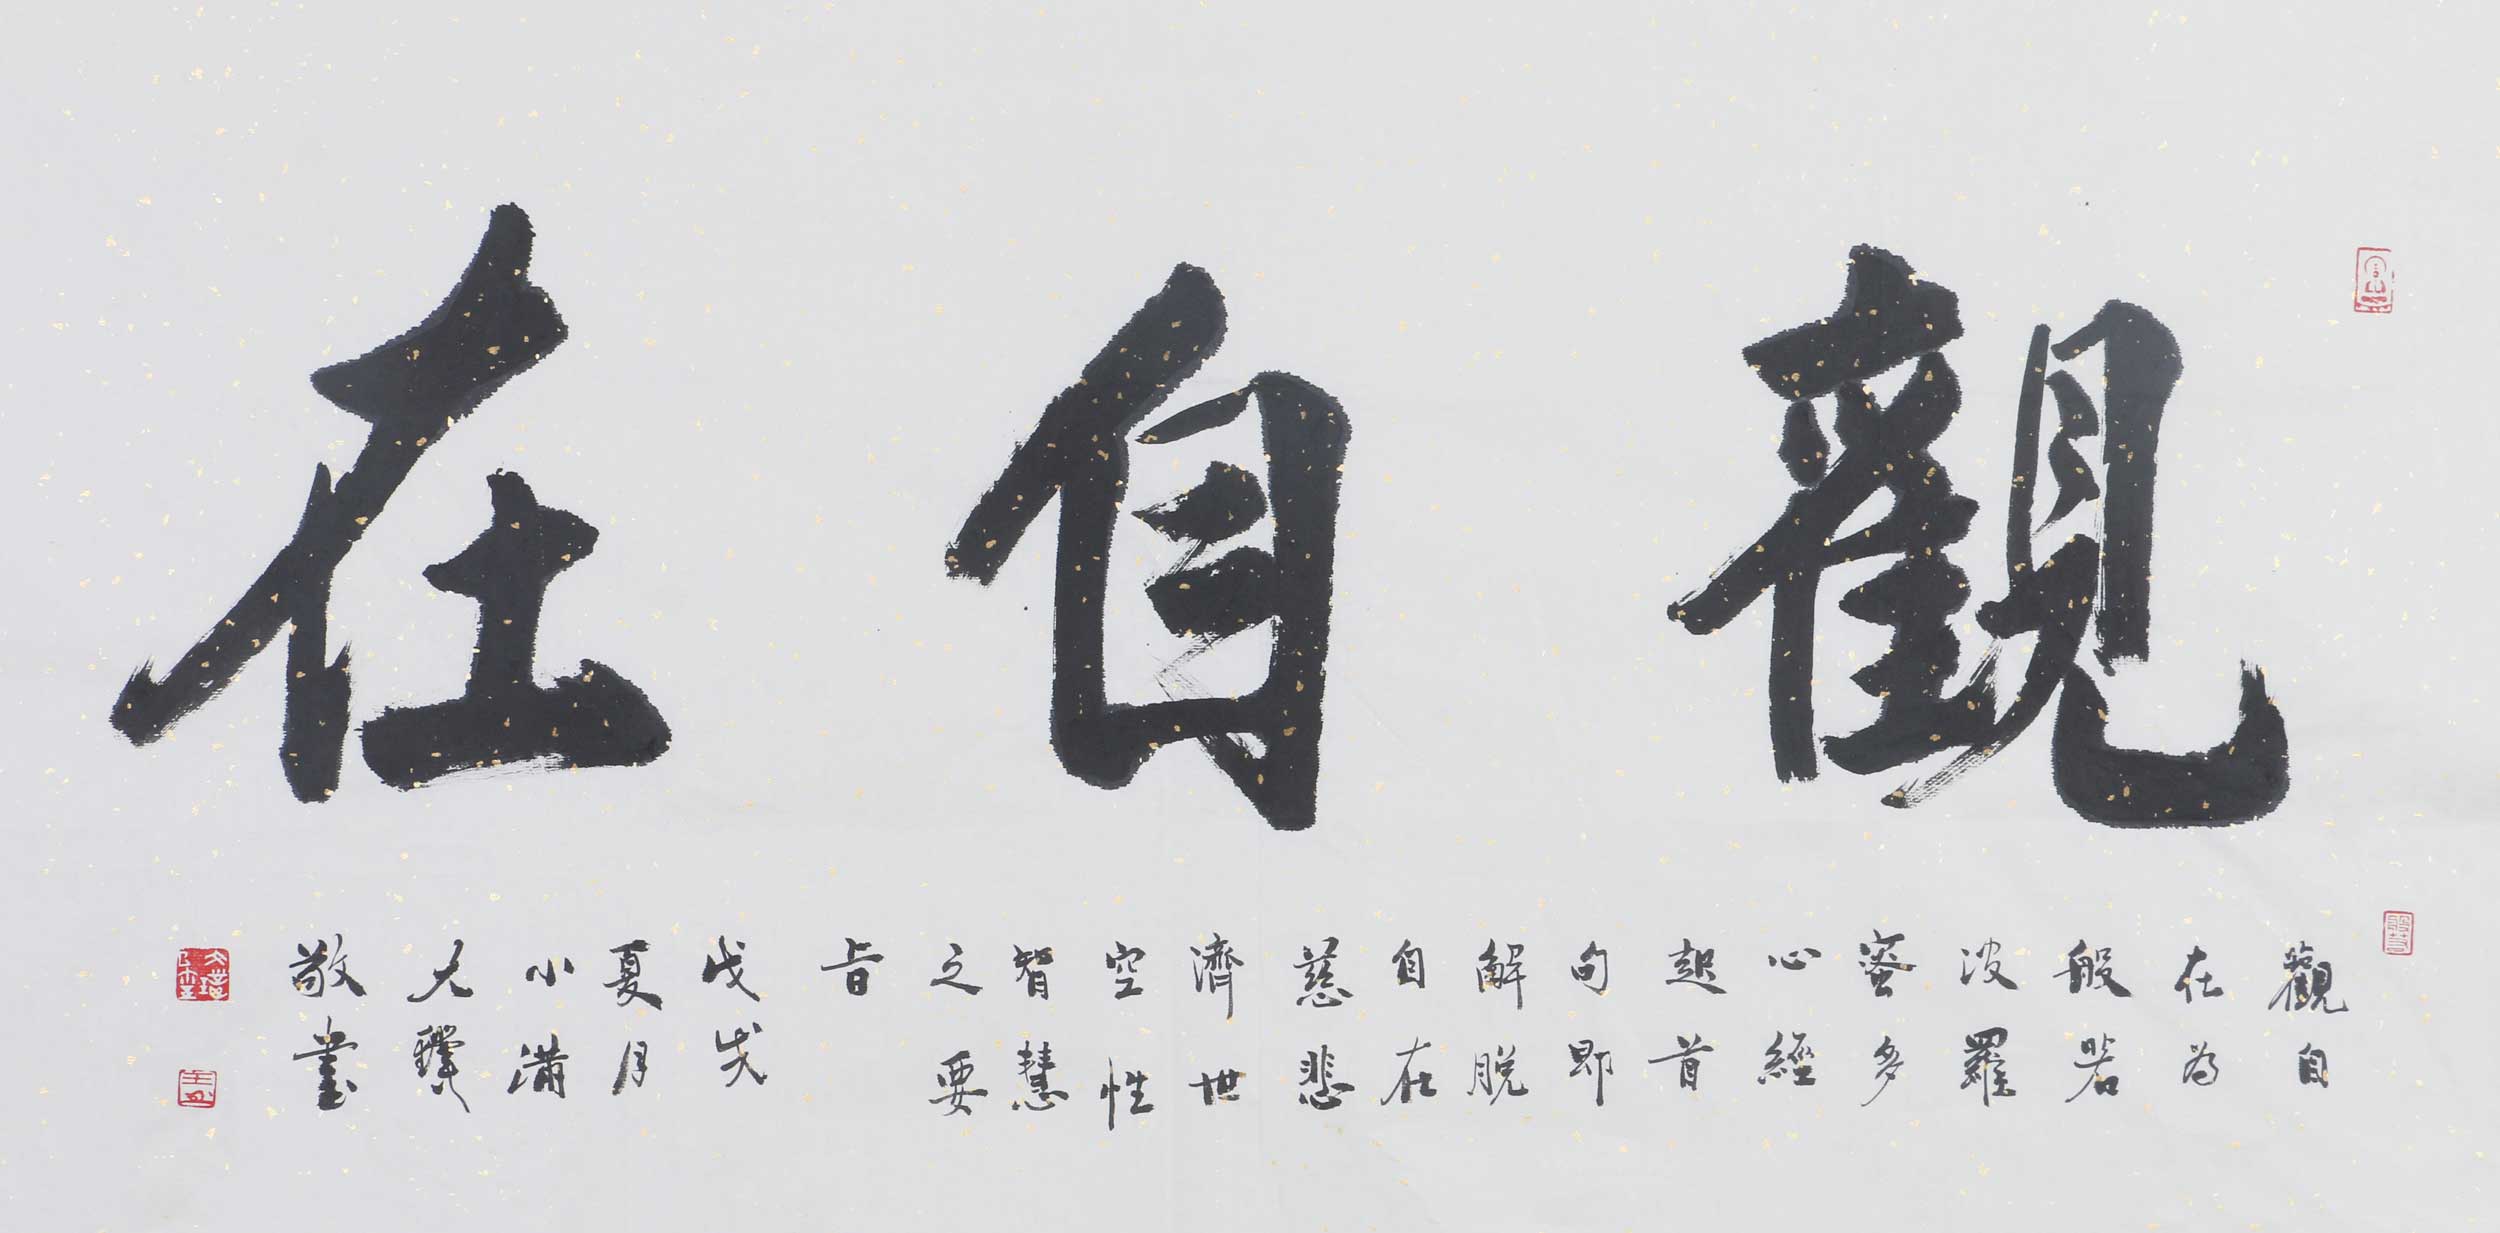 觀自在
觀自
在為
般若
波羅
蜜多
心經
起首
句即
解脫
自在
慈悲
濟世
空性
智慧
之要
旨
戊戌
夏月
小滿
敬書